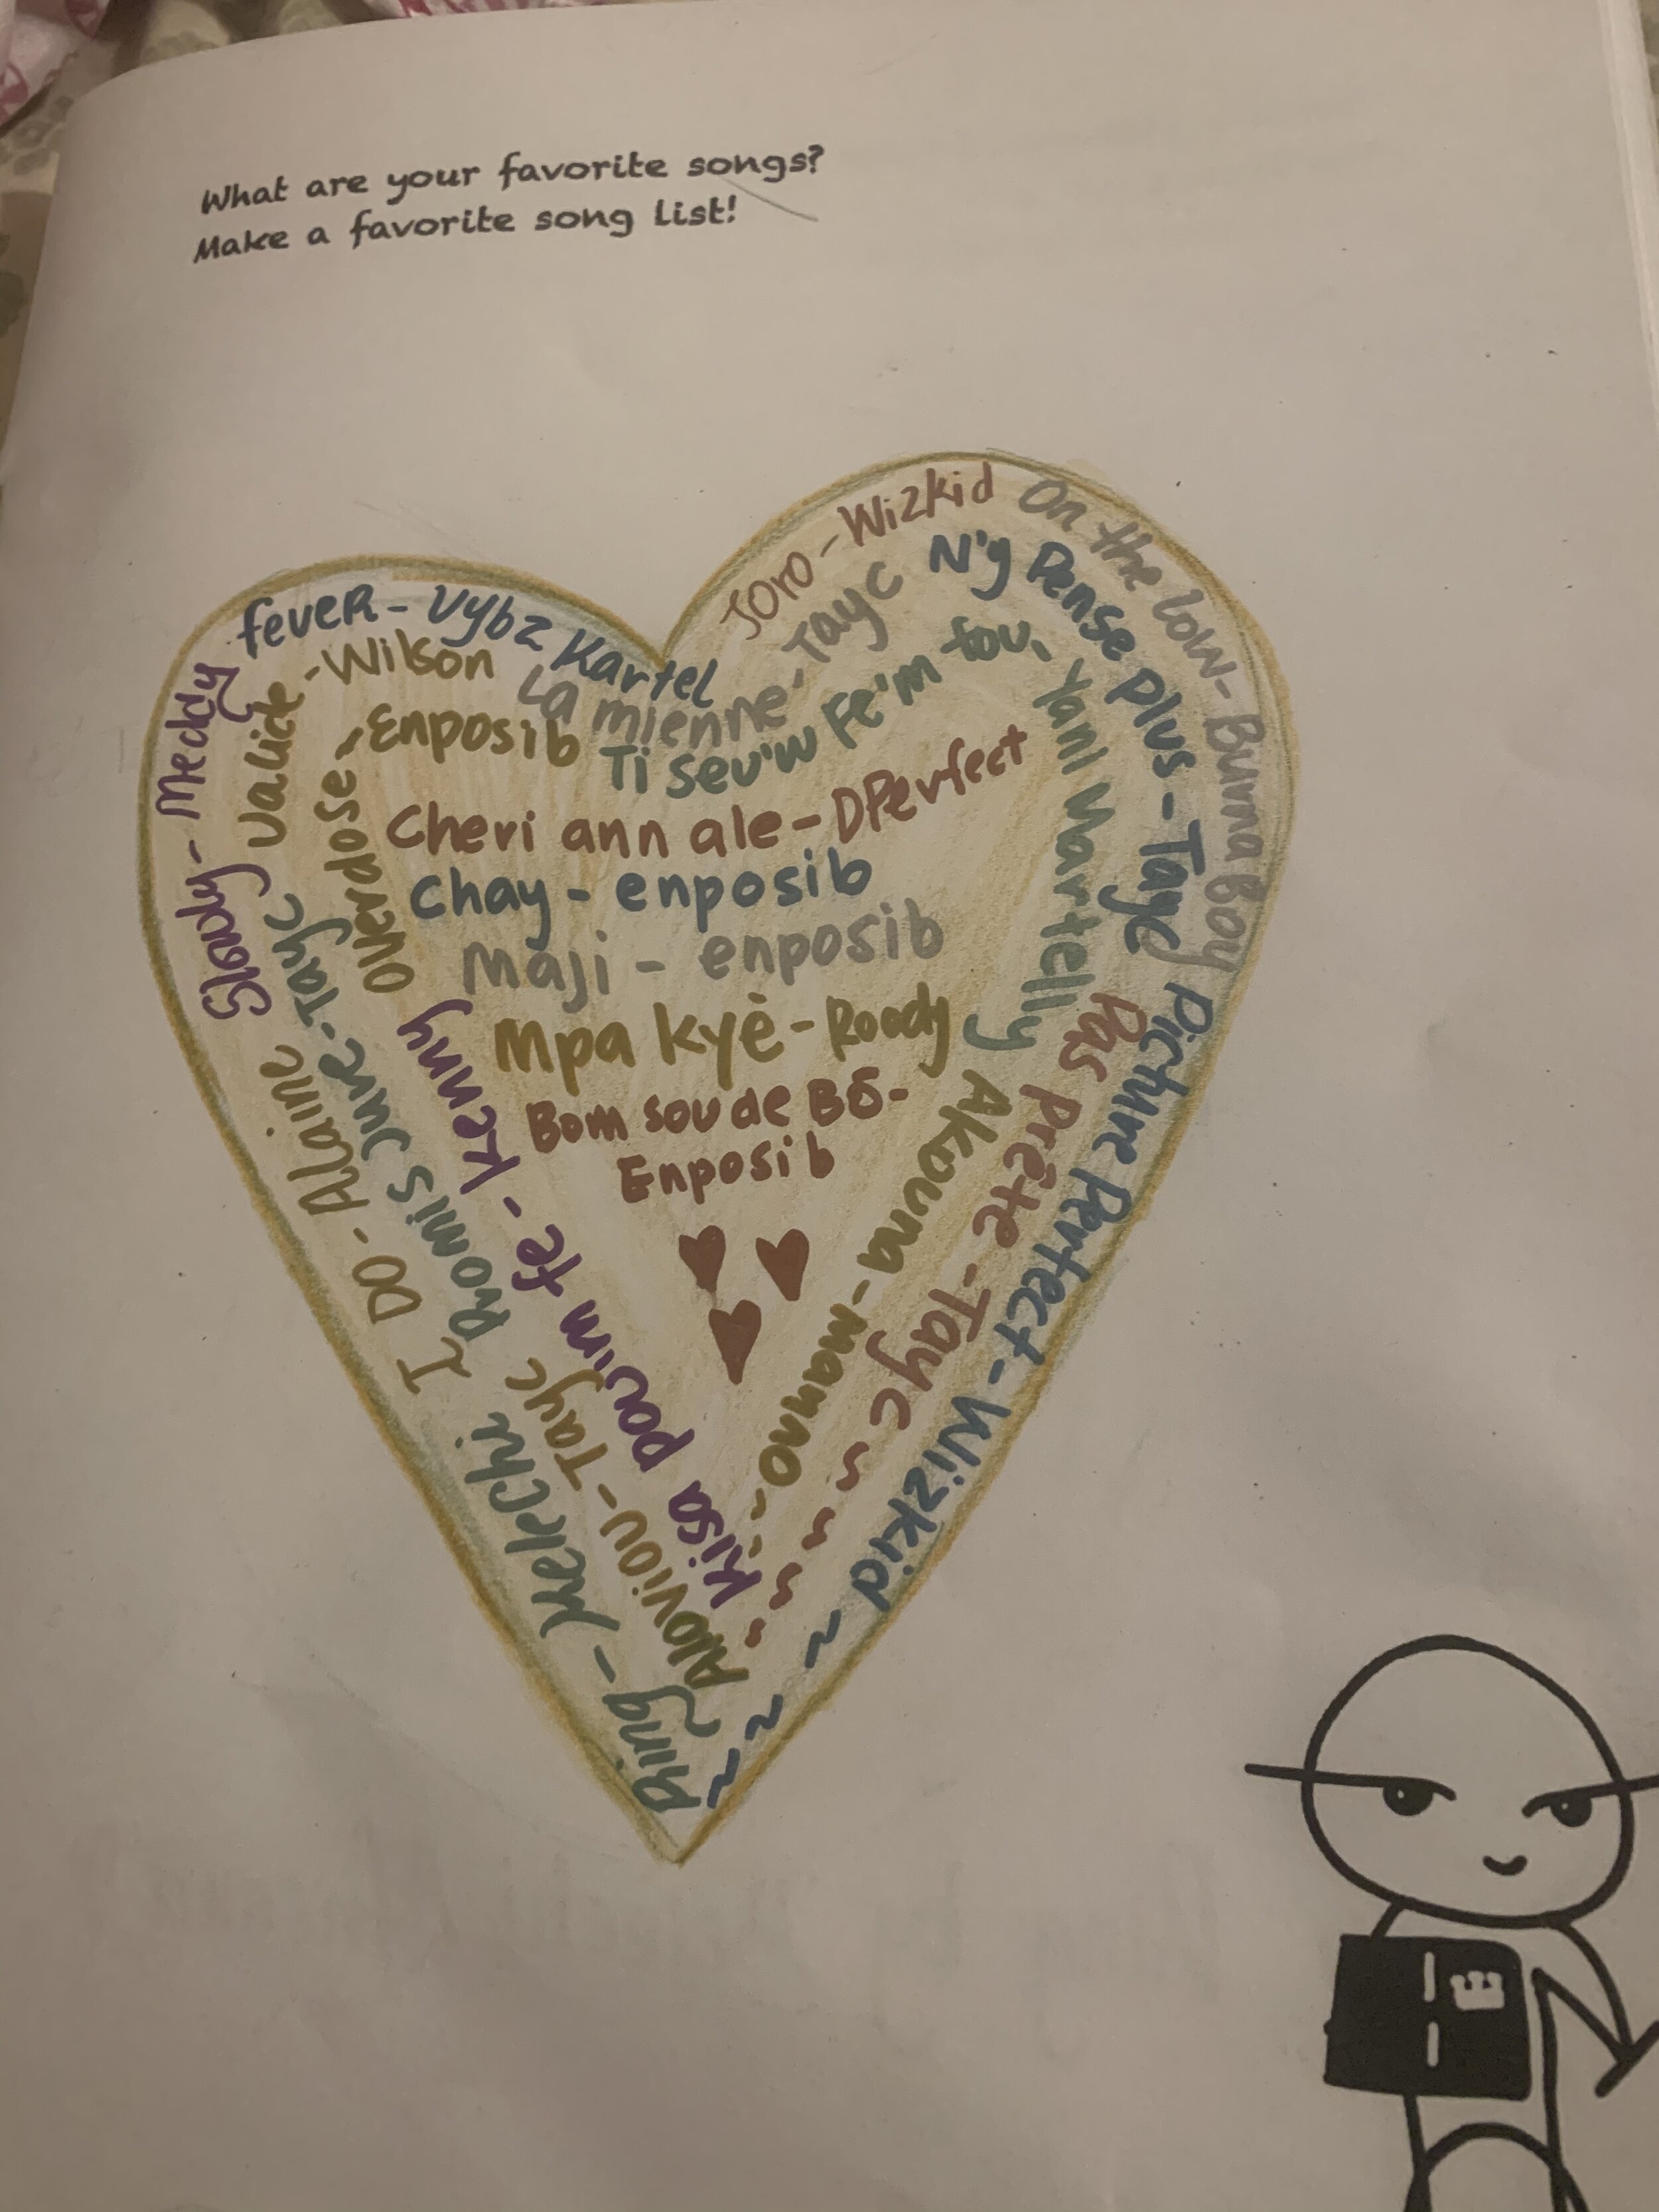 What are your favorite songs?
Make a favorite song list!
Slowly - Meddy
feveR - Vybz Kartel
Joro - Wizkid
On the low - Burna Boy
Picture Perfect - Wizkid
I Do - Alaine
Ring - Melechi
Valide - Wilson
La mienne - Tayc
N'y Pense plus - Tayc
Pas Prête - Tayc
Promis Juré - Tayc
Aloviou - Tayc
Overdose - Enposib
Ti seu'w Fe'm tou, Yani Martelly
Akouna - mamno
Kisa pou'm fè - Kenny
Cheri ann ale - DPerfect
Chay - enposib
Maji - enposib
Mpa kyè - Roody
Bom sou de Bō -
Enposib
E